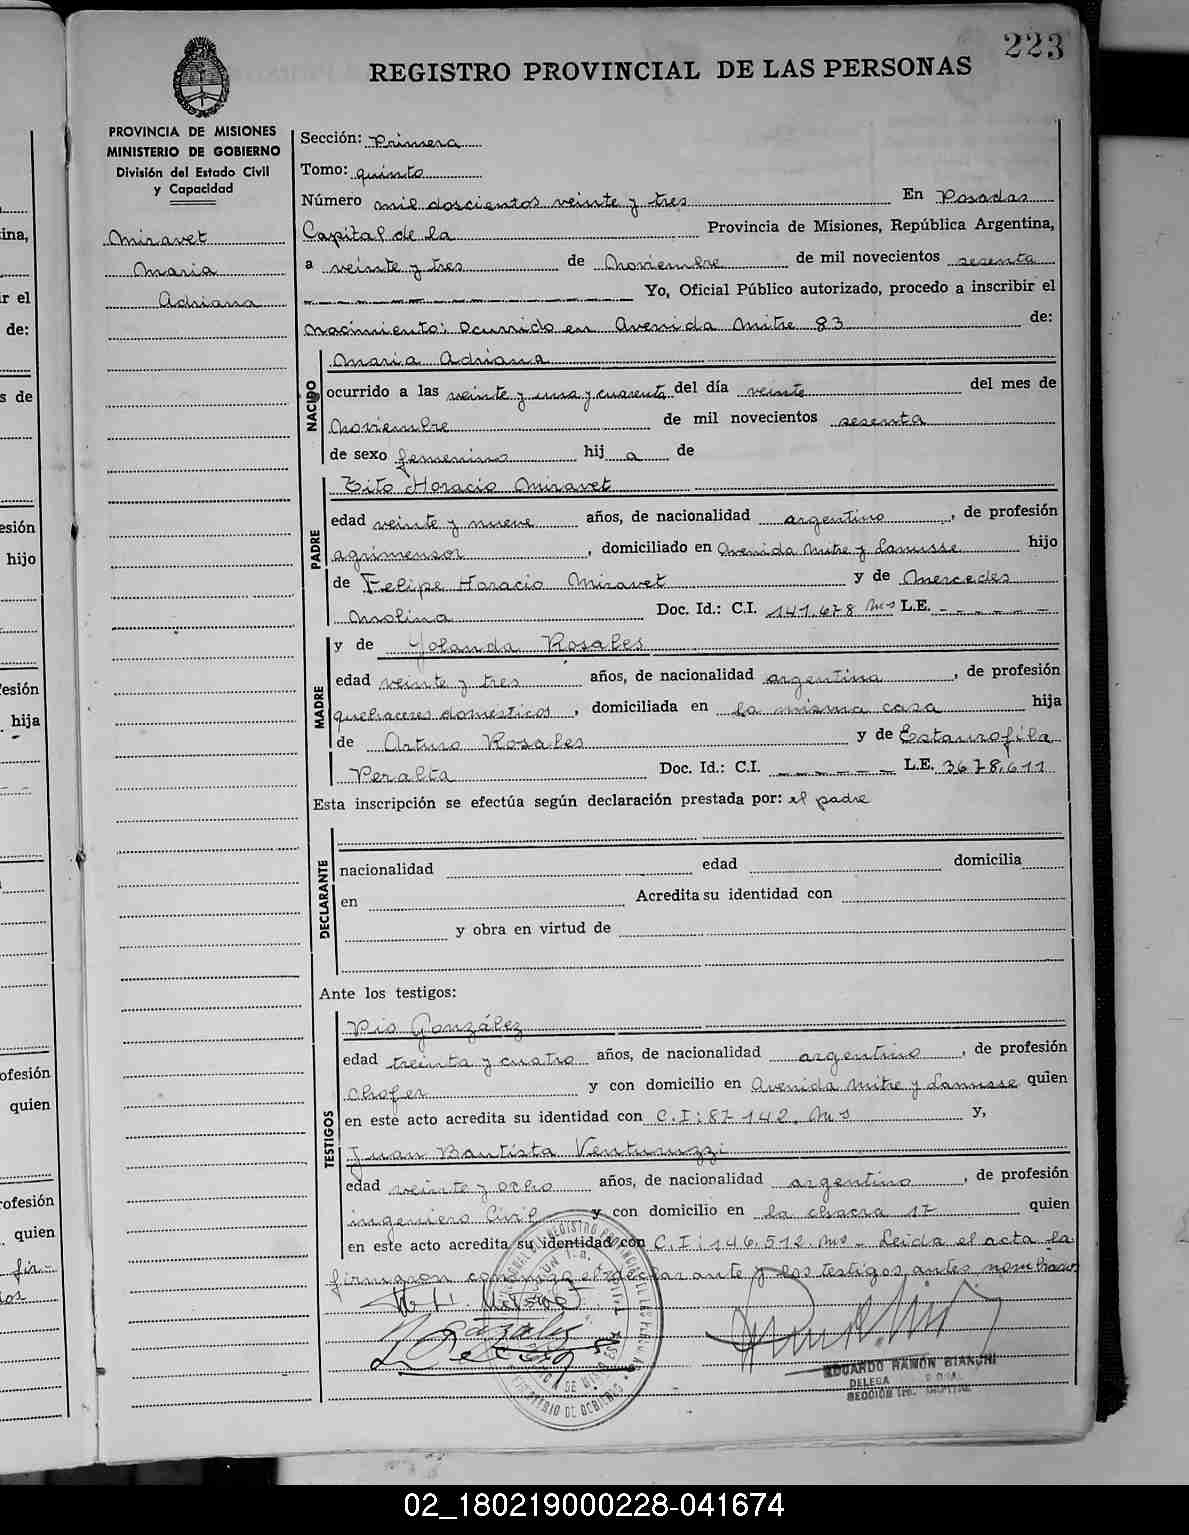 223
REGISTRO PROVINCIAL DE LAS PERSONAS
PROVINCIA DE MISIONES
MINISTERIO DE GOBIERNO
División del Estado Civil
y Capacidad
Miravet
Maria
Adriana
Sección: Primera
Tomo: quinto
Número mil doscientos veinte y tres En Posadas
Capital de la Provincia de Misiones, República Argentina,
a veinte y tres de Noviembre de mil novecientos sesenta
Yo, Oficial Público autorizado, procedo a inscribir el
nacimiento: ocurrido en Avenida Mitre 83 de:
NACIDO
Maria Adriana
ocurrido a las veinte y una y cuarenta del día veinte del mes de
Noviembre de mil novecientos sesenta
de sexo femenino hij a de
PADRE
Tito Horacio Miravet
edad veinte y nueve años, de nacionalidad argentino, de profesión
agrimensor, domiciliado en Avenida Mitre y Lanusse hijo
de Felipe Horacio Miravet y de Mercedes
Molina Doc. Id.: C.I. 141.678 Mns L.E. - - - - - -
MADRE
y de Yolanda Rosales
edad veinte y tres años, de nacionalidad argentina, de profesión
quehaceres domesticos, domiciliada en la misma casa hija
de Arturo Rosales y de Estaurofila
Peralta Doc. Id.: C.I. - - - - - - L.E. 3678.611
Esta inscripción se efectúa según declaración prestada por: el padre
DECLARANTE
nacionalidad edad domicilia
en Acredita su identidad con
y obra en virtud de
Ante los testigos:
TESTIGOS
Pio González
edad treinta y cuatro años, de nacionalidad argentino, de profesión
chofer y con domicilio en Avenida Mitre y Lanusse quien
en este acto acredita su identidad con C.I: 87-142. Mns y,
Juan Bautista Venturuzzi
edad veinte y ocho años, de nacionalidad argentino, de profesión
ingeniero Civil y con domicilio en la chacra 17 quien
en este acto acredita su identidad con C.I: 146.512. Mns - Leida el acta la
firmaron conmigo el declarante y los testigos antes nombrados
EDUARDO RAMON BIANCHI
ina,
r el
de:
s de
esión
hijo
esión
hija
ofesión
quien
rofesión
quien
02_180219000228-041674